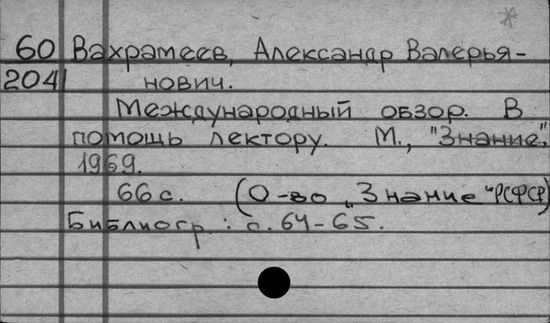 60 Вахрамеев, Александр Валерья-
204 нович.
Международный обзор. В
помощь лектору. М., "Знание",
1969.
66 с. (О-во „Знание" РСФСР)
Библиогр.: с. 64-65.